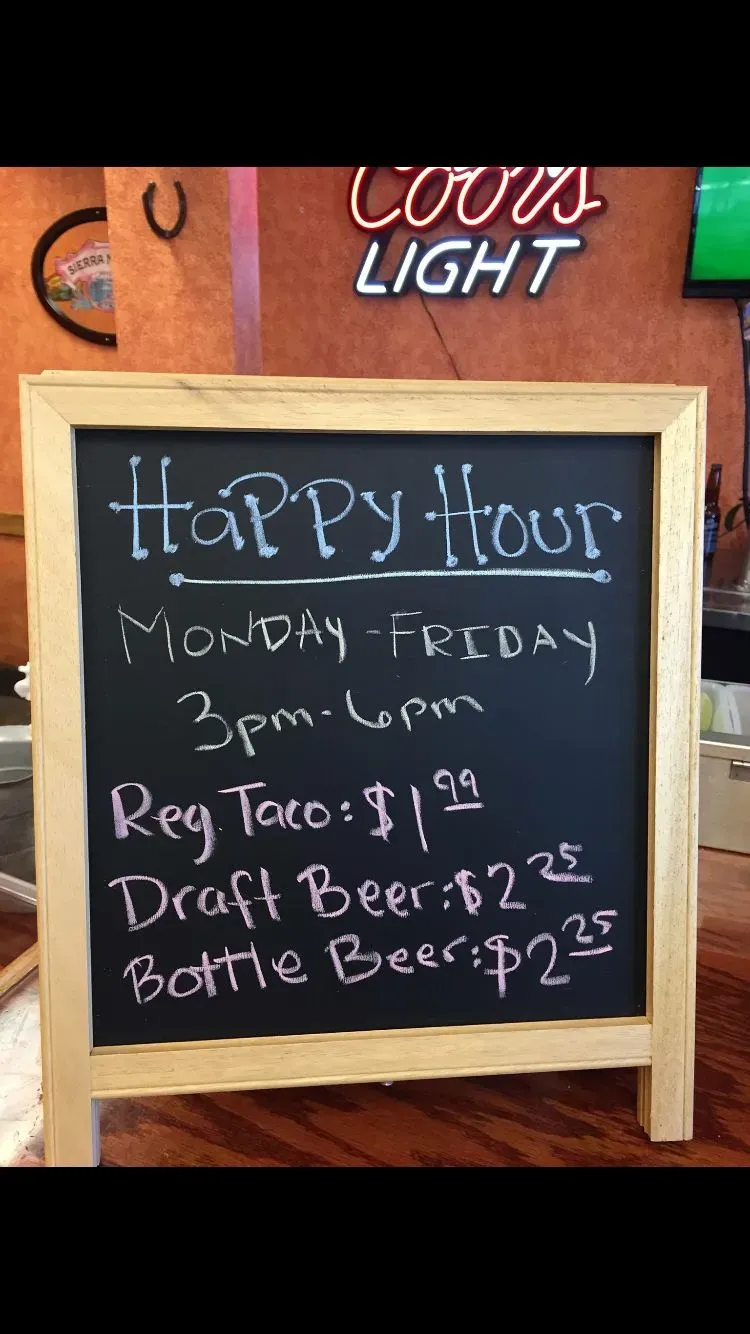 Coors
LIGHT
SIERRA N
Happy Hour
MONDAY - FRIDAY
3pm - 6pm
Reg Taco: $1 99
Draft Beer: $2 25
Bottle Beer: $2 25